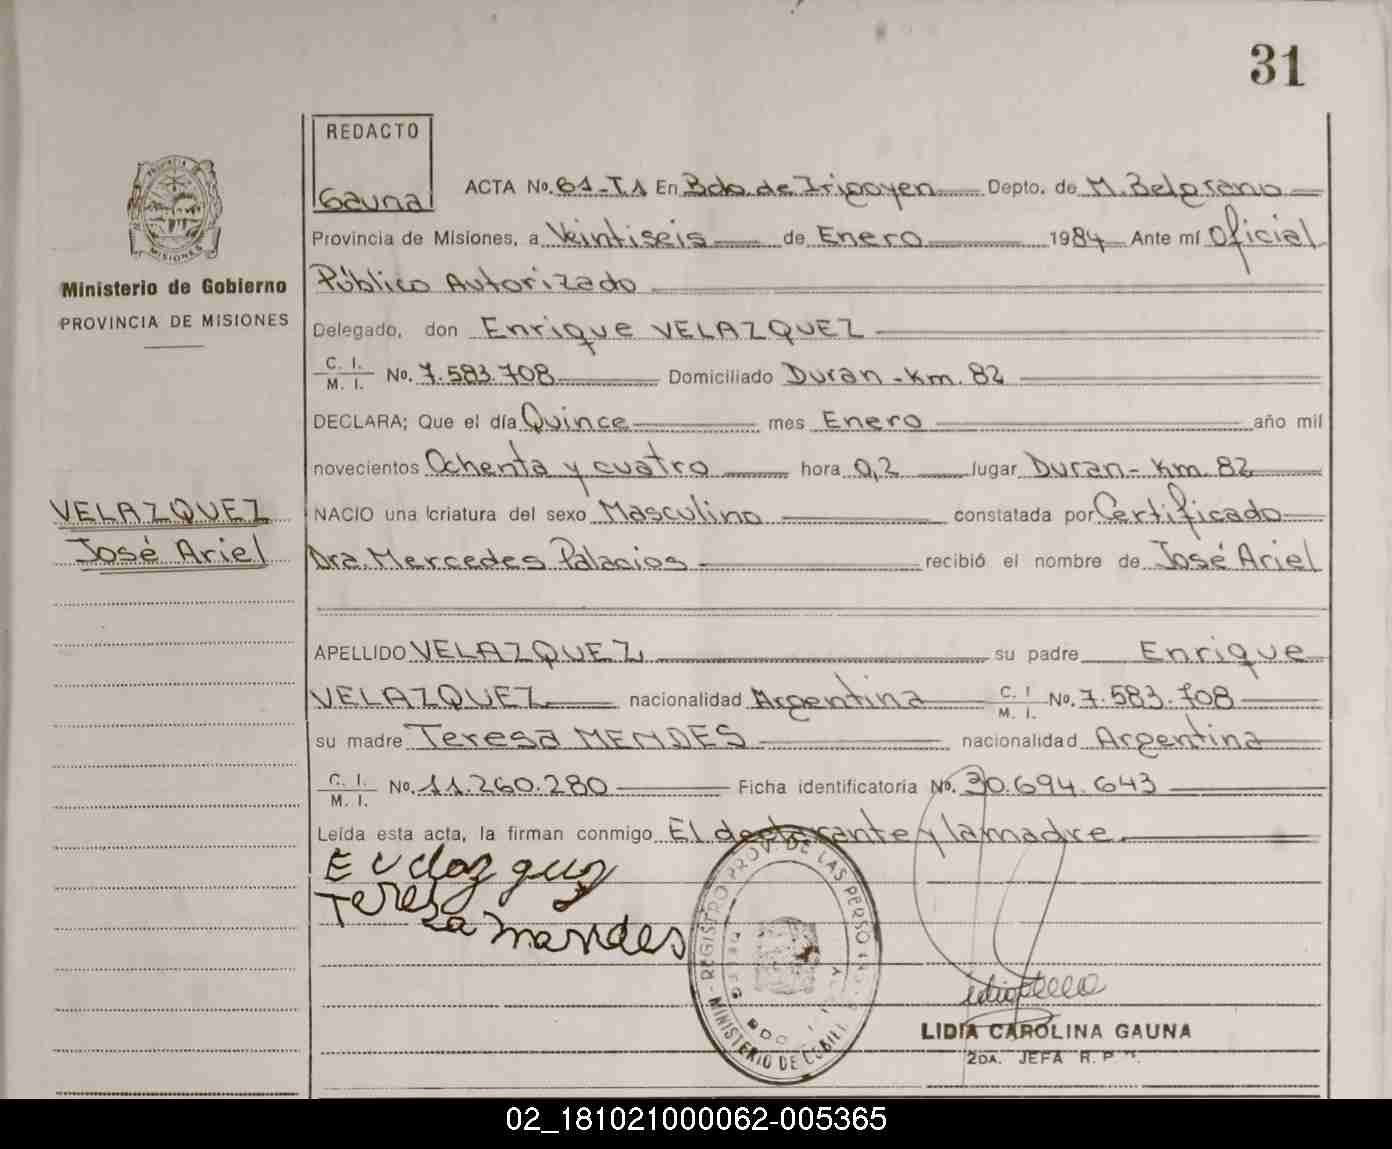 31
REDACTO
Gauna
ACTA No. 61-T1 En Bdo. de Irigoyen Depto. de M. Belgrano
Provincia de Misiones, a Veintiseis de Enero 1984 Ante mí Oficial
Público Autorizado
Delegado, don Enrique VELAZQUEZ
C. I.
M. I. No. 7.583.708 Domiciliado Duran - Km. 82
DECLARA; Que el día Quince mes Enero año mil
novecientos Ochenta y cuatro hora 0,2 lugar Duran - Km. 82
NACIO una criatura del sexo Masculino constatada por Certificado
Dra. Mercedes Palacios recibió el nombre de José Ariel
APELLIDO VELAZQUEZ su padre Enrique
VELAZQUEZ nacionalidad Argentina C. I. M. I. No. 7.583.708
su madre Teresa MENDES nacionalidad Argentina
C. I.
M. I. No. 11.260.280 Ficha identificatoria No. 30.694.643
Leída esta acta, la firman conmigo El declarante y la madre.
Teresa Mendes
MINISTERIO DE - REGISTRO PROV. DE LAS PERSO
LIDIA CAROLINA GAUNA
2DA. JEFA R. P.
PROVINCIA DE
MISIONES
Ministerio de Gobierno
PROVINCIA DE MISIONES
VELAZQUEZ
José Ariel
02_181021000062-005365